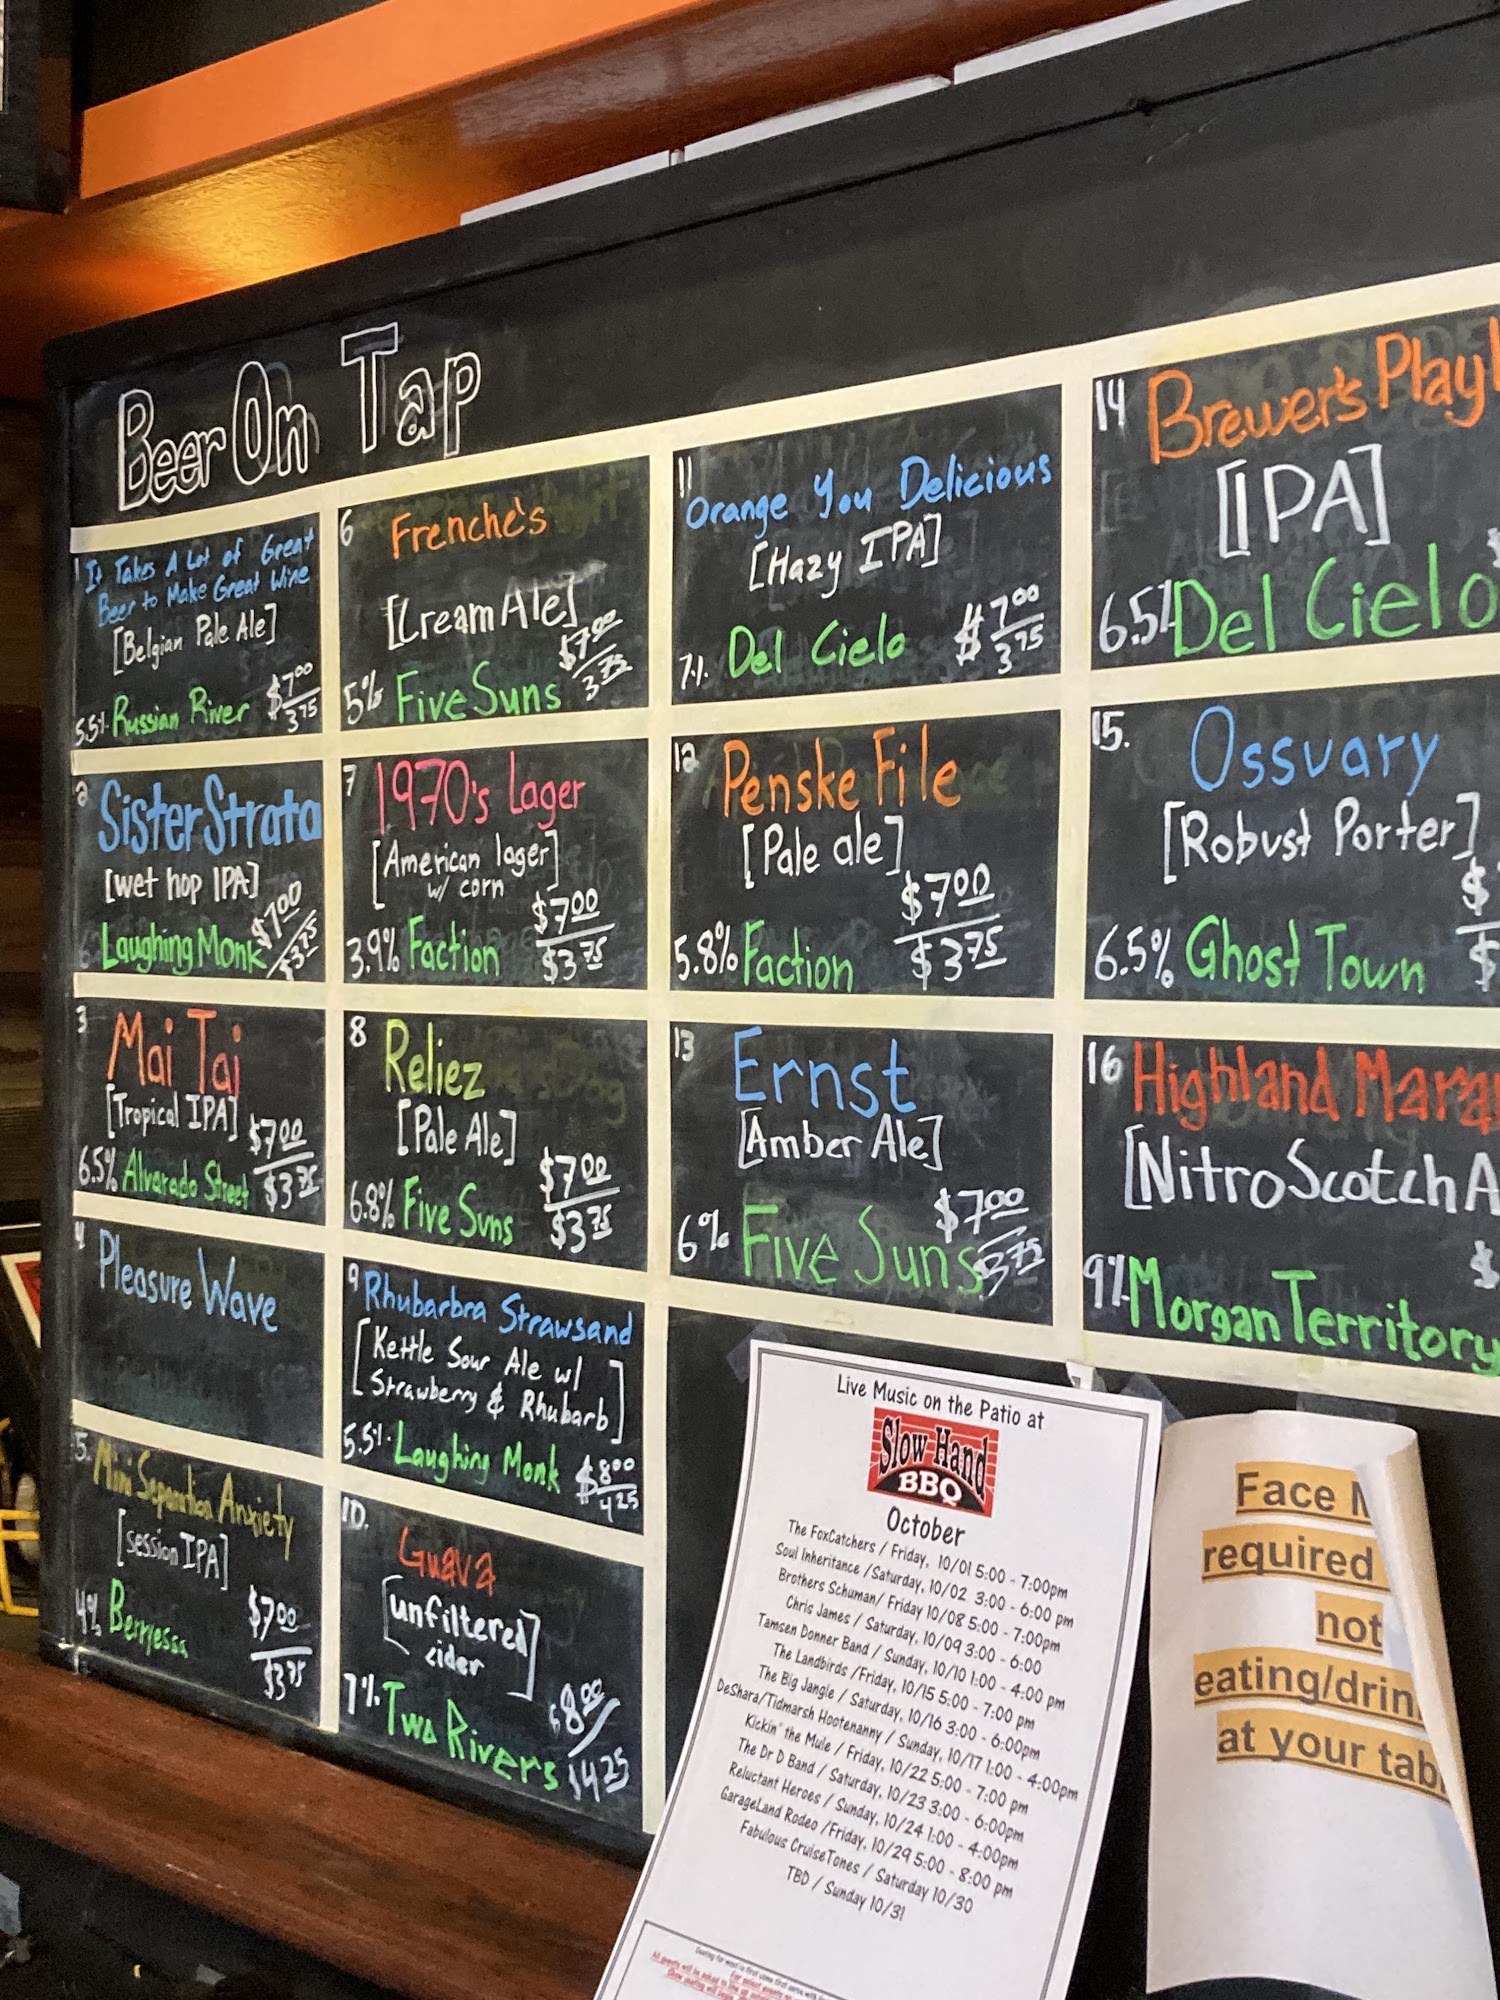 Beer On Tap
1 It Takes A Lot of Great
Beer to Make Great Wine
[Belgian Pale Ale]
5.5% Russian River $7.00
3.75
2 SisterStrata
[wet hop IPA]
Laughing Monk $7.00
$3.75
3 Mai Tai
[Tropical IPA]
6.5% Alvarado Street $7.00
$3.75
4 Pleasure Wave
5. Mini Separation Anxiety
[session IPA]
4% Berryessa $7.00
$3.75
6 Frenche's
[Cream Ale]
5% Five Suns $7.00
3.75
7 1970's Lager
[American lager]
w/ corn
3.9% Faction $7.00
$3.75
8 Reliez
[Pale Ale]
6.8% Five Suns $7.00
$3.75
9 Rhubarbra Strawsand
[Kettle Sour Ale w/
Strawberry & Rhubarb]
5.5% Laughing Monk $8.00
4.25
10. Guava
[unfiltered]
cider
7% Two Rivers $8.00
$4.25
11 Orange You Delicious
[Hazy IPA]
7% Del Cielo $7.00
3.75
12 Penske File
[Pale ale]
5.8% Faction $7.00
$3.75
13 Ernst
[Amber Ale]
6% Five Suns $7.00
3.75
14 Brewer's Playl
[IPA]
6.5% Del Cielo
15. Ossuary
[Robust Porter]
6.5% Ghost Town $
$
16 Highland Mara
[Nitro Scotch A
9% Morgan Territory $
Live Music on the Patio at
Slow Hand
BBQ
October
The FoxCatchers / Friday, 10/01 5:00 - 7:00pm
Soul Inheritance /Saturday, 10/02 3:00 - 6:00 pm
Brothers Schuman/ Friday 10/08 5:00 - 7:00pm
Chris James / Saturday, 10/09 3:00 - 6:00
Tamsen Donner Band / Sunday, 10/10 1:00 - 4:00 pm
The Landbirds /Friday, 10/15 5:00 - 7:00 pm
The Big Jangle / Saturday, 10/16 3:00 - 6:00pm
DeShara/Tidmarsh Hootenanny / Sunday, 10/17 1:00 - 4:00pm
Kickin' the Mule / Friday, 10/22 5:00 - 7:00 pm
The Dr D Band / Saturday, 10/23 3:00 - 6:00pm
Reluctant Heroes / Sunday, 10/24 1:00 - 4:00pm
GarageLand Rodeo /Friday, 10/29 5:00 - 8:00 pm
Fabulous CruiseTones / Saturday 10/30
TBD / Sunday 10/31
Face M
required
not
eating/drin
at your tab